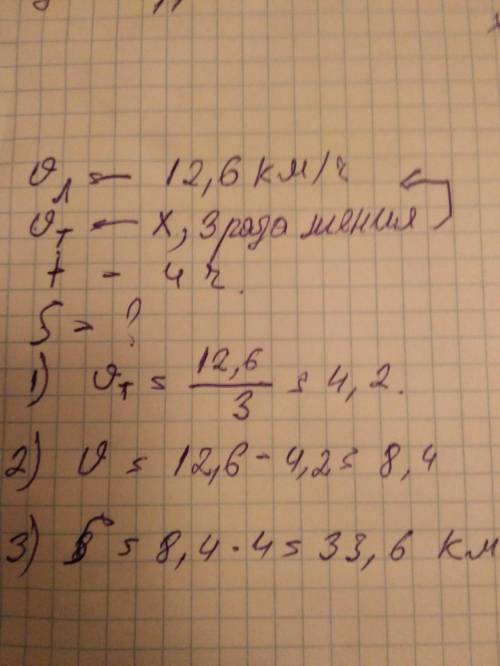 υл = 12,6 км/ч
υт - х, 3 раза меньше
t - 4 ч.
S = ?
1) υт = 12,6 / 3 = 4,2.
2) υ = 12,6 - 4,2 = 8,4
3) S = 8,4 · 4 = 33,6 км